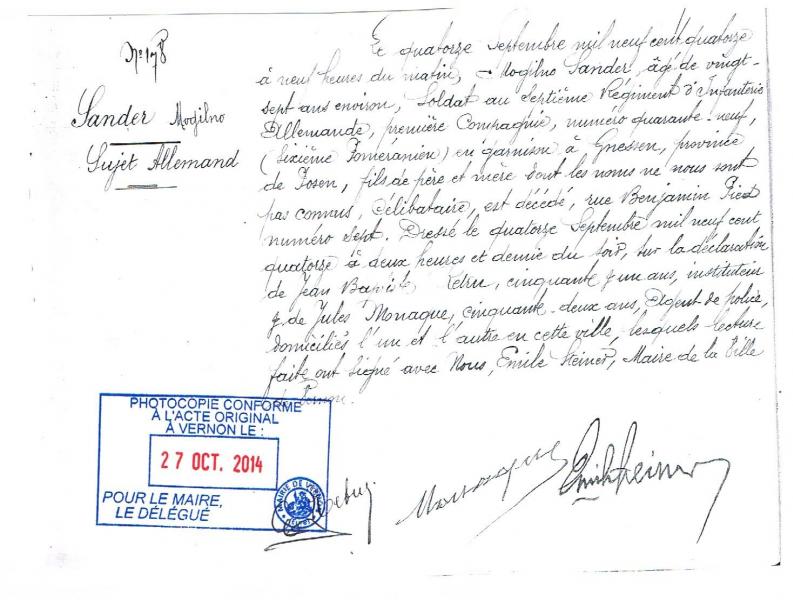 N° 178
Sander Mogilno
Sujet Allemand
Le quatorze Septembre mil neuf cent quatorze
à neuf heures du matin, Mogilno Sander, âgé de vingt-
sept ans environ, Soldat au Septième Régiment d'Infanterie
Allemande, première Compagnie, numéro quarante-neuf,
(Sixième Poméranien) en garnison à Gnessen, province
de Posen, fils de père et mère dont les noms ne nous sont
pas connus, Célibataire, est décédé, rue Benjamin Pied
numéro sept. Dressé le quatorze Septembre mil neuf cent
quatorze à deux heures et demie du soir, sur la déclaration
de Jean Baptiste cinquante & un ans, instituteur
& de Jules Monaque, cinquante-deux ans, Agent de police,
domiciliés l'un et l'autre en cette ville, lesquels lecture
faite ont signé avec Nous, Emile Steiner, Maire de la Ville
de Vernon.
PHOTOCOPIE CONFORME
À L'ACTE ORIGINAL
À VERNON LE :
27 OCT. 2014
POUR LE MAIRE,
LE DÉLÉGUÉ
MAIRIE DE VERNON
Monaque
Emile Steiner